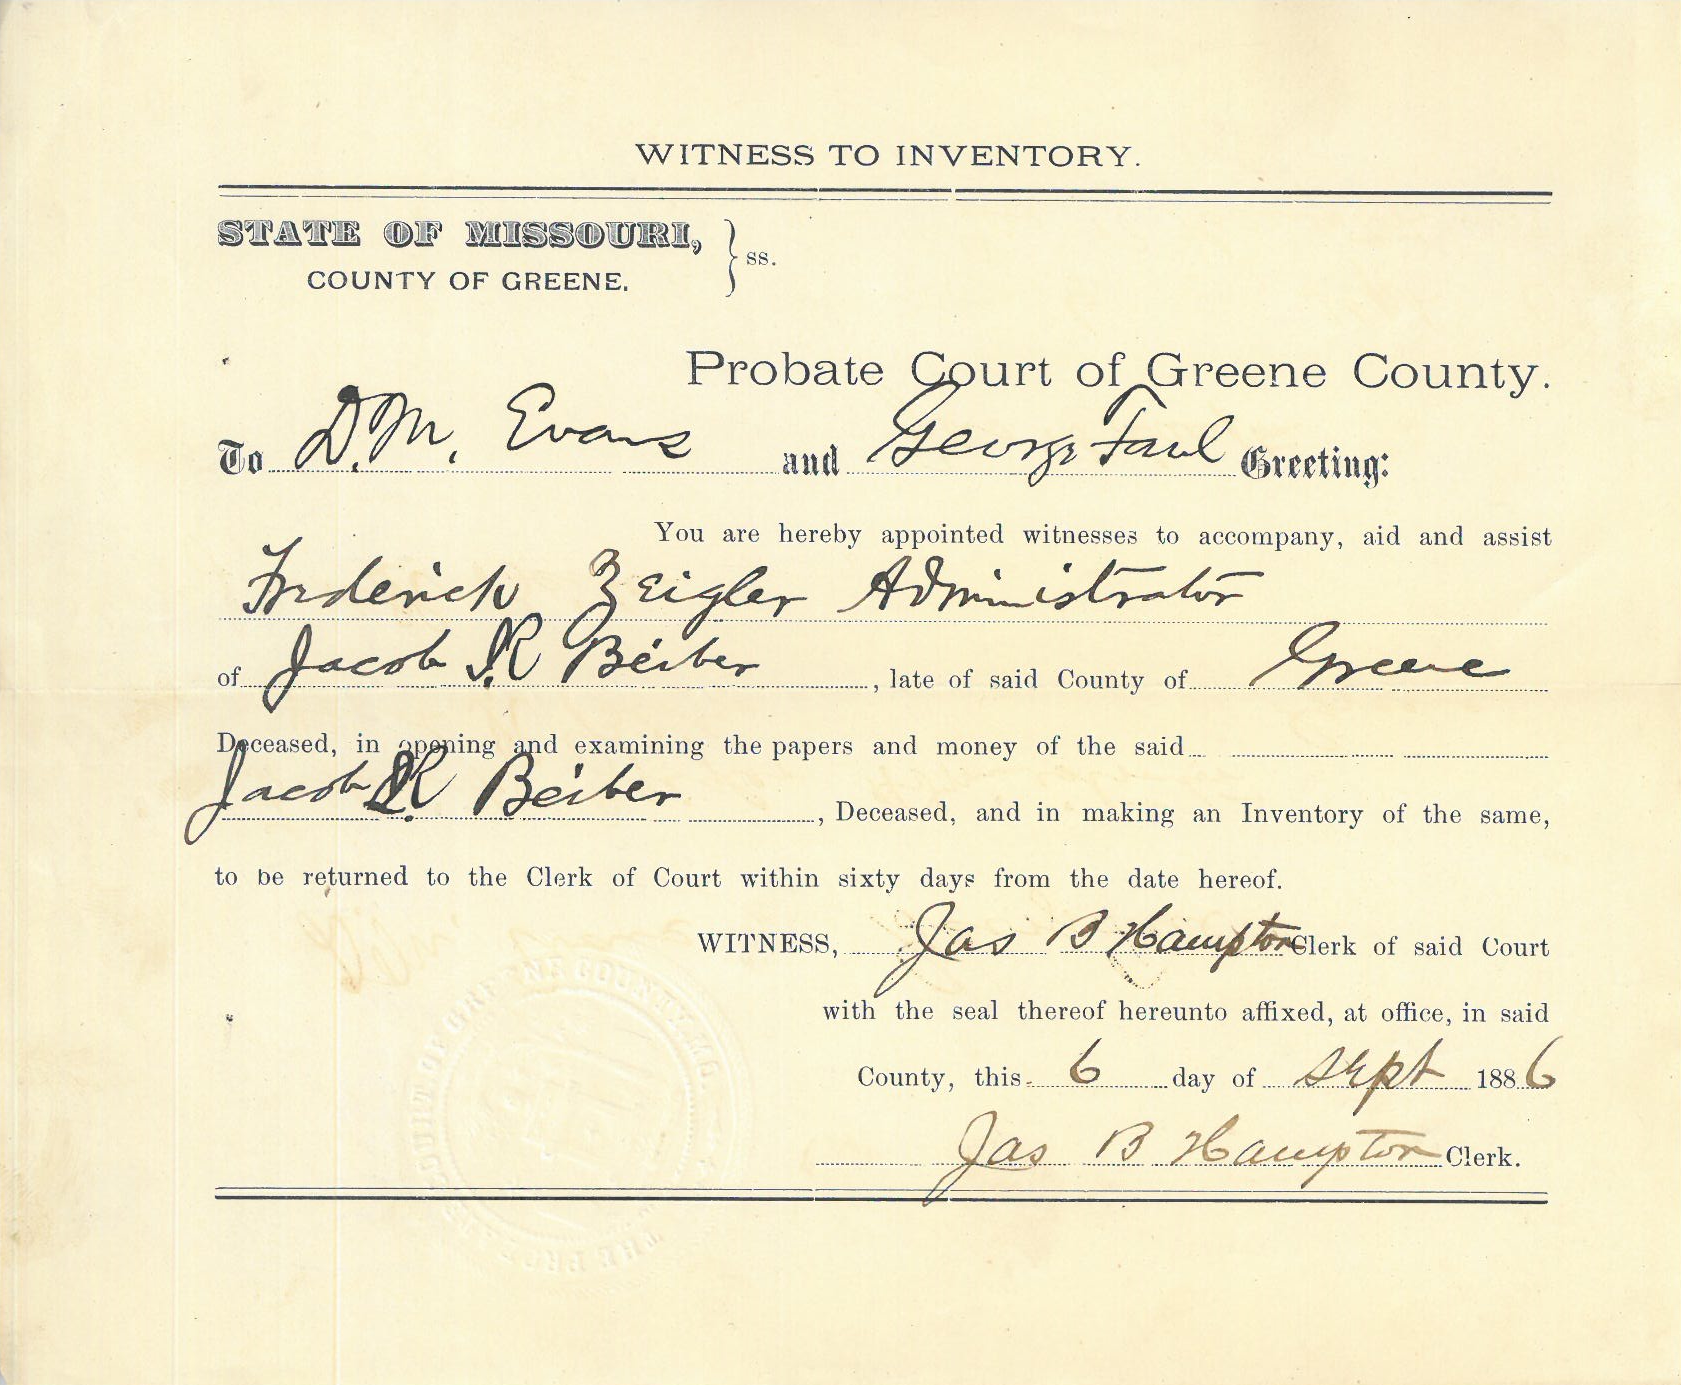 WITNESS TO INVENTORY.
STATE OF MISSOURI, } ss.
COUNTY OF GREENE.
Probate Court of Greene County.
To D. M. Evans and George Faul Greeting:
You are hereby appointed witnesses to accompany, aid and assist
Frederick Zeigler Administrator
of Jacob R Beiber, late of said County of Greene
Deceased, in opening and examining the papers and money of the said
Jacob R Beiber, Deceased, and in making an Inventory of the same,
to be returned to the Clerk of Court within sixty days from the date hereof.
WITNESS, Jas B Hampton Clerk of said Court
with the seal thereof hereunto affixed, at office, in said
County, this 6 day of Sept 1886
Jas B Hampton Clerk.